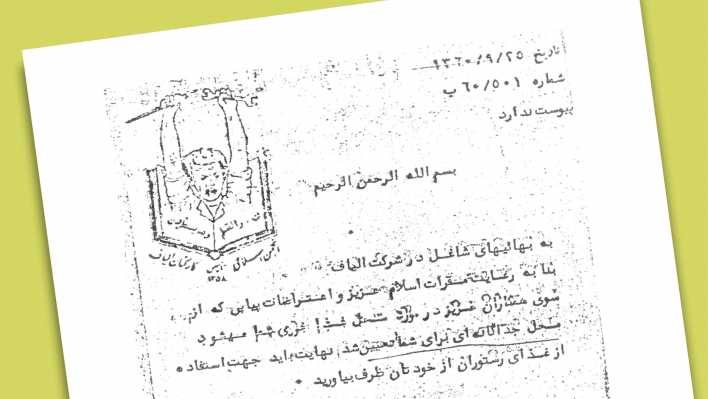 تاریخ ۱۳۶۰/۹/۲۵
شماره ۶۰/۵۰۱ ب
پیوست ندارد
بسم الله الرحمن الرحیم
انجمن اسلامی
۱۳۵۸
به بهائیهای شاغل در شرکت الیاف
بنا به رعایت مقررات اسلام عزیز و اعتراضات پیاپی که از
سوی همکاران عزیز در مورد محل غذا خوری شما میشود
محل جداگانه‌ای برای شما تعیین شد، نهایت باید جهت استفاده
از غذای رستوران از خودتان ظرف بیاورید •